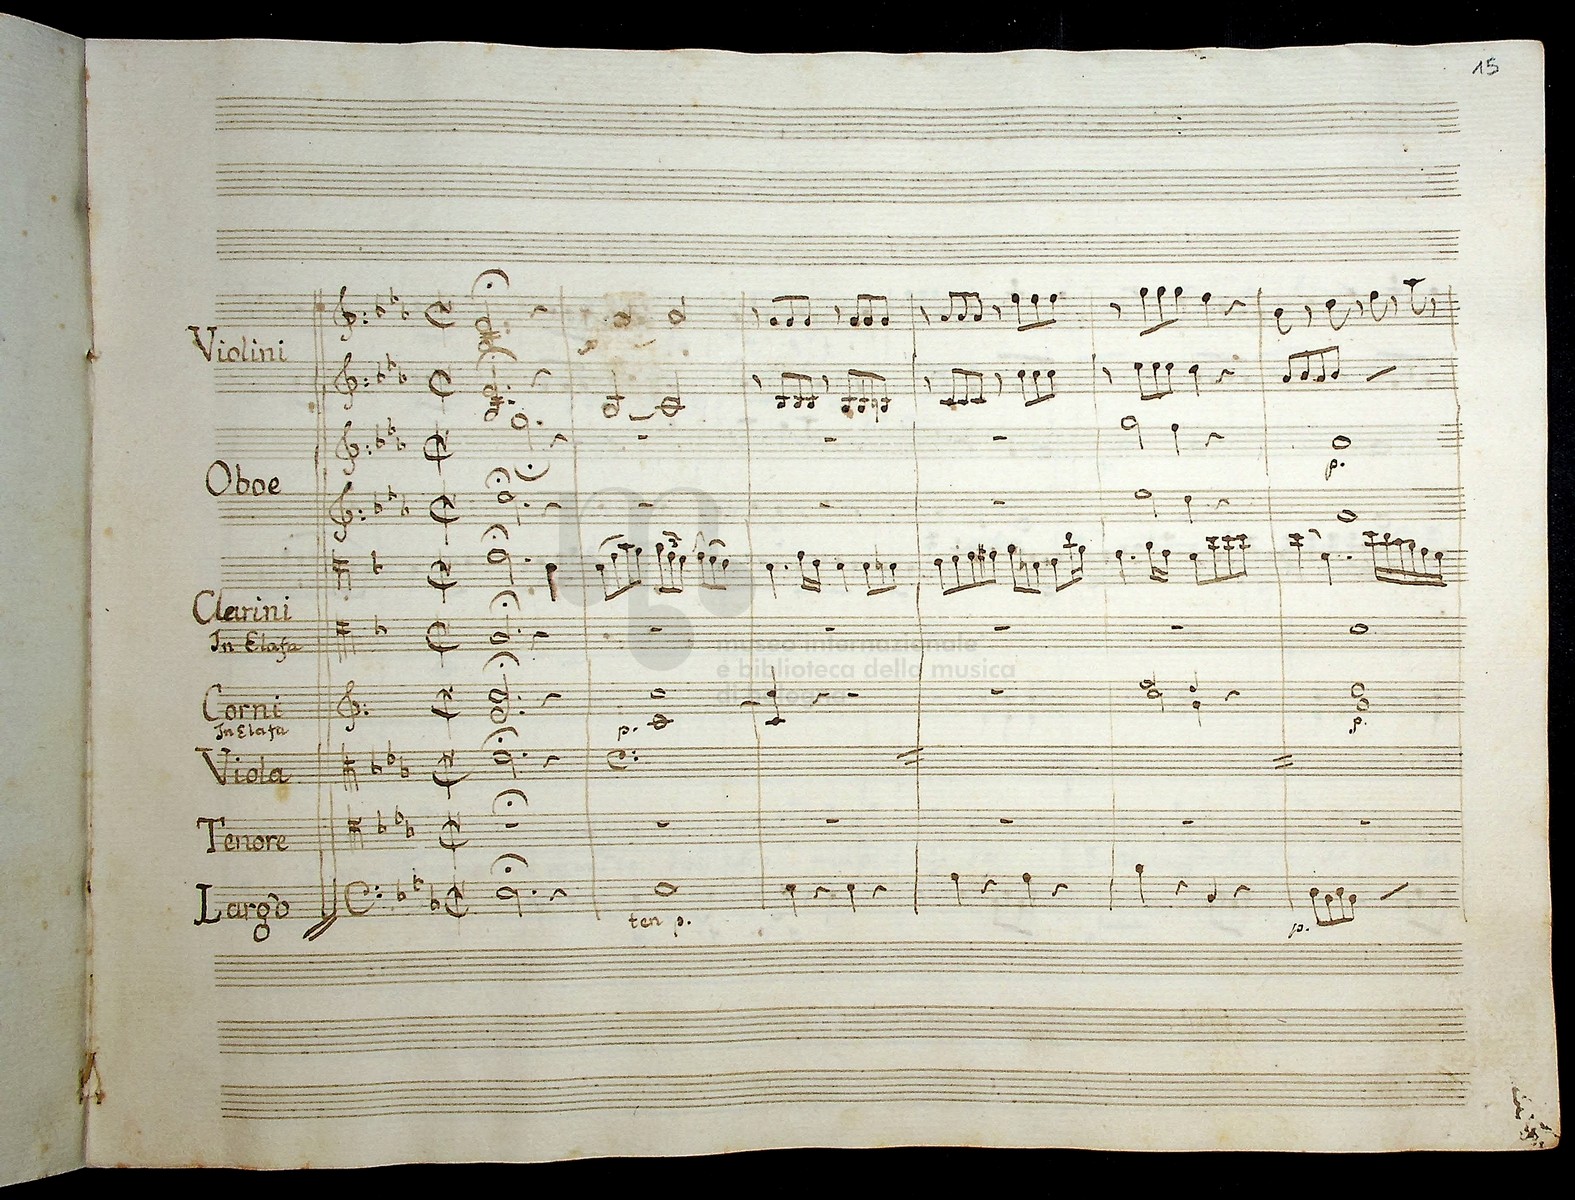 15
Violini
Oboe
p.
Clarini
In Elafa
museo internazionale
e biblioteca della musica
di bologna
Corni
In Elafa
p.
p.
Viola
Tenore
Largo
ten p.
p.